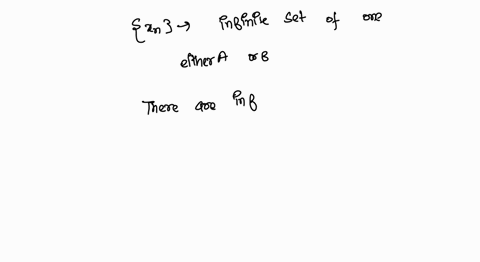 {xn} → infinite set of one
either A or B
There are inf